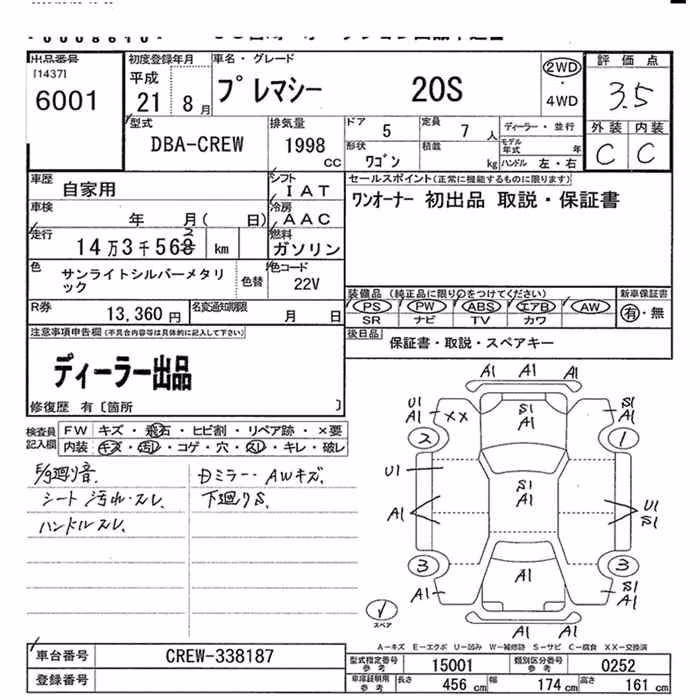 出品番号
[1437]
6001
初度登録年月
平成
21 8月
車名・グレード
プレマシー 20S
2WD
・
4WD
評価点
3.5
外装 内装
C C
型式
DBA-CREW
排気量
1998
CC
ドア 5
定員 7人
形状 ワゴン
積載 kg
ディーラー・並行
モデル年式 年
ハンドル 左・右
車歴 自家用
シフト IAT
車検 年 月( 日)
冷房 AAC
走行 14万3千568 km
2
燃料 ガソリン
色 サンライトシルバーメタリック
色替
色コード 22V
R券 13,360円
名変通知期限 月 日
セールスポイント(正常に機能するものに限ります)
ワンオーナー 初出品 取説・保証書
装備品(純正品に限り○をつけてください)
PS PW ABS エアB AW
SR ナビ TV カワ
新車保証書
有・無
後日品
保証書・取説・スペアキー
注意事項申告欄(不具合内容等は具体的に記入して下さい)
ディーラー出品
修復歴 有〔箇所 〕
検査員記入欄
FW キズ・飛石・ヒビ割・リペア跡・×要
内装:キズ・汚れ・コゲ・穴・スレ・キレ・破レ
E/g廻り音.
シート 汚れ・スレ.
ハンドルスレ.
Dミラー・AWキズ.
下廻りS.
A1 A1 A1
U1
A1
XX
S1
A1
S1
A1
2
1
U1
S1
A1
A1
U1
S1
3
3
A1
A1
S1
A1
A1
スペア
A-キズ E-エクボ U-凹み W-補修跡 S-サビ C-腐食 XX-交換済
車台番号 CREW-338187
登録番号
型式指定番号 参考 15001
類別区分番号 参考 0252
車庫証明用 参考 長さ 456cm 幅 174cm 高さ 161cm